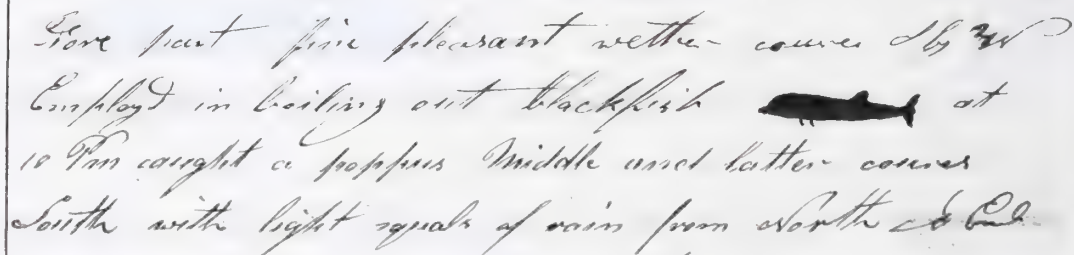 Fore part fine pleasant wether courses S by W
Employd in boiling out blackfish at
10 Pm caught a poppus Middle and latter courses
South with light squals of rain from North &